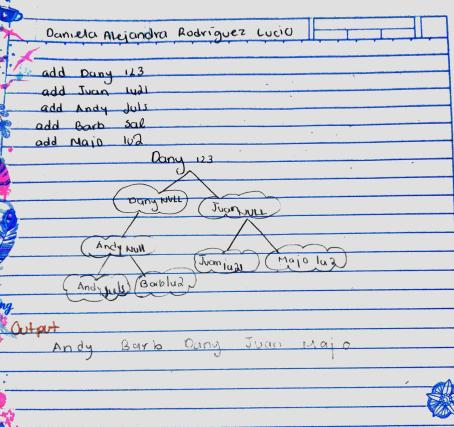 Daniela Alejandra Rodríguez Lucio
add Dany 123
add Juan lu21
add Andy Juls
add Barb Sal
add Majo lu2
Dany 123
Dany NULL Juan NULL
Andy Null
Juan lu21 Majo lu2
Andy Juls Barb lu2
Output
Andy Barb Dany Juan Majo